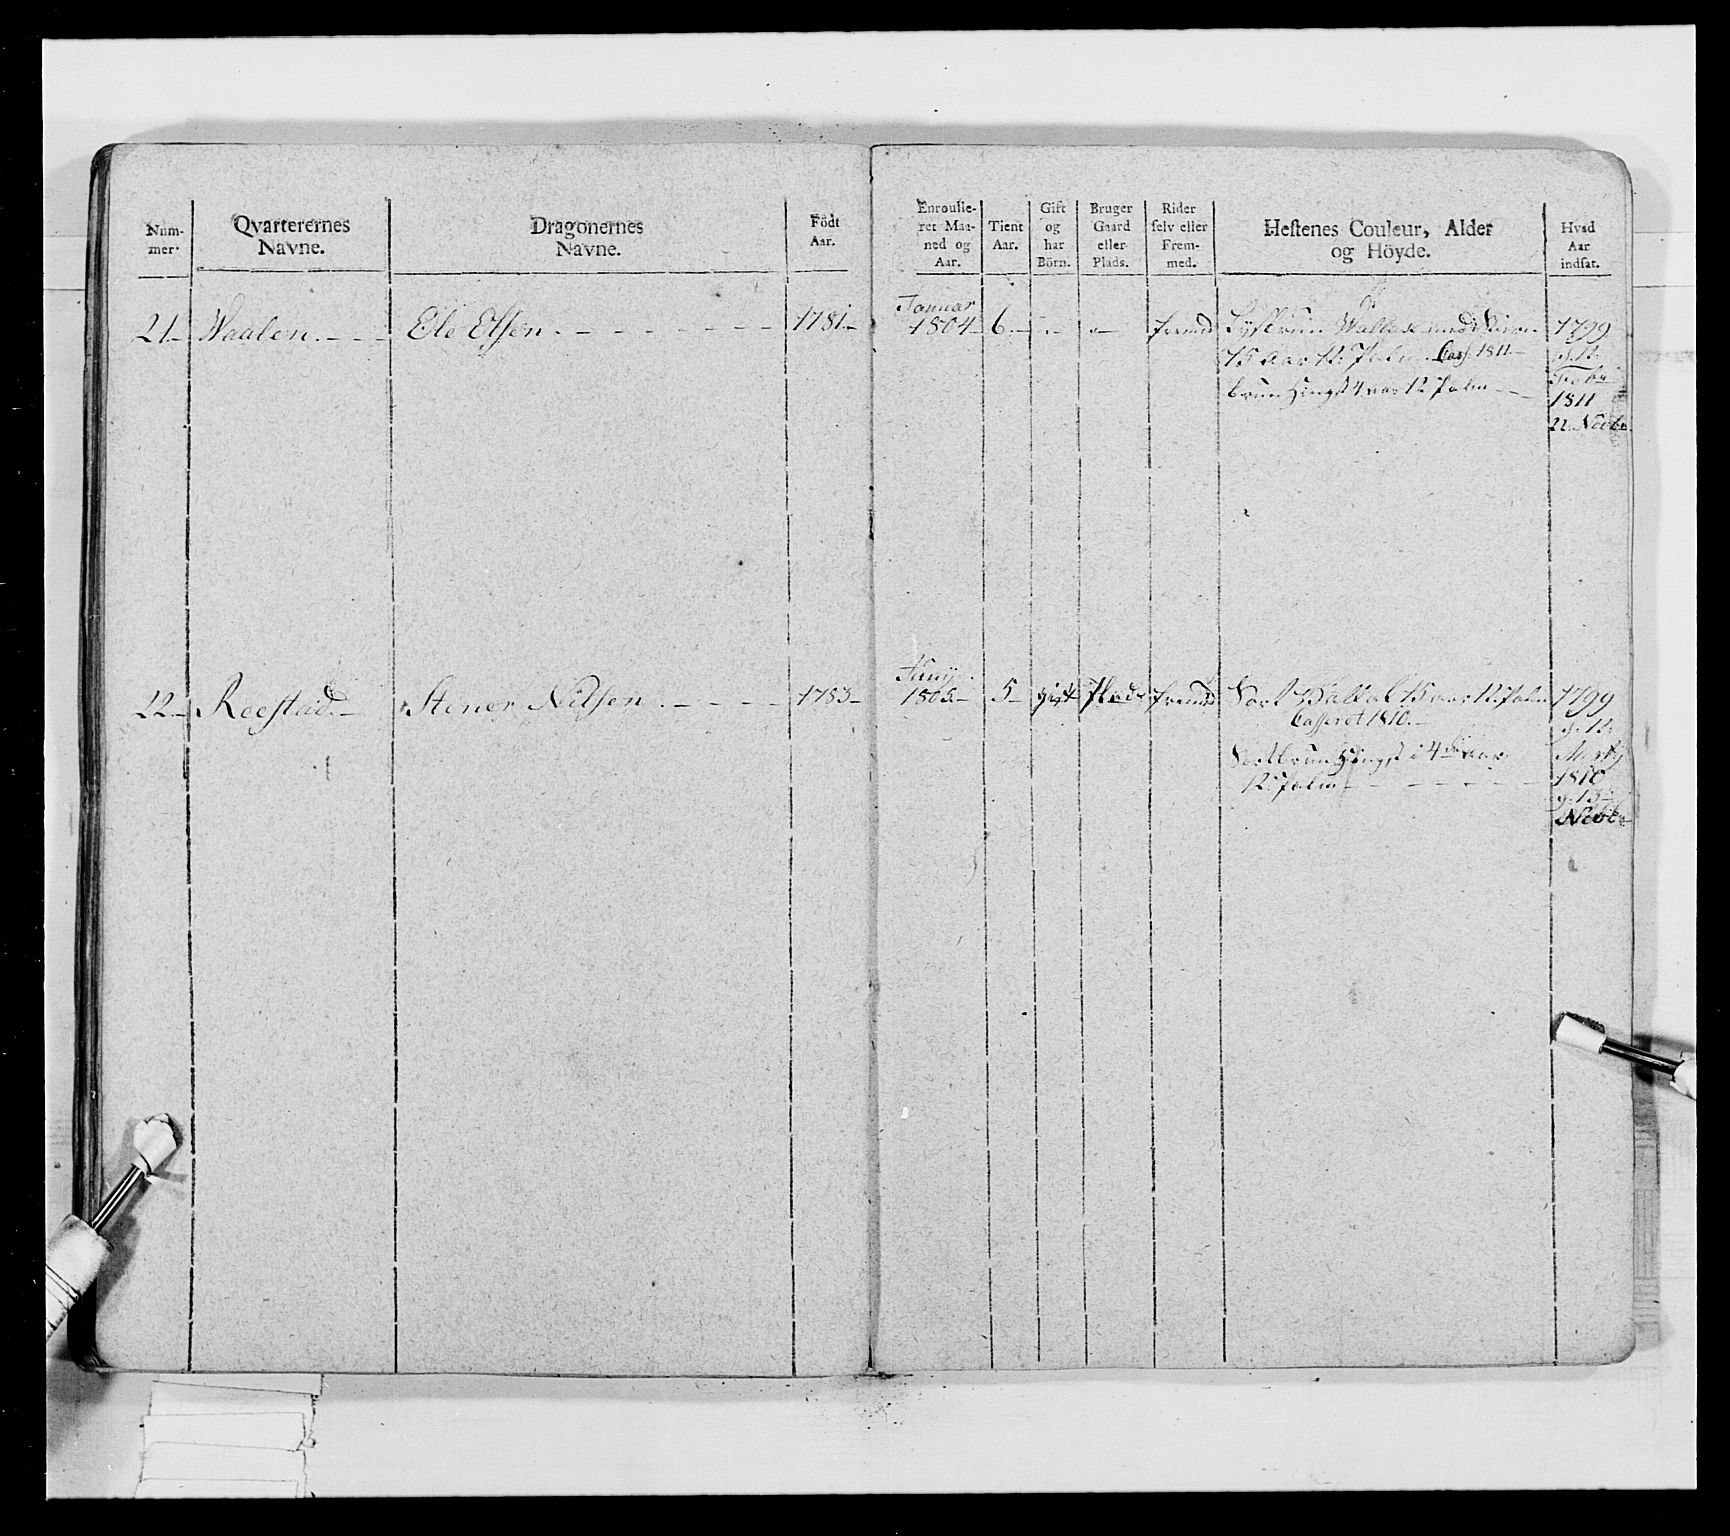 Num-
mer.
Qvarterernes
Navne.
Dragonernes
Navne.
Födt
Aar.
Enroulle-
ret Maa-
ned og
Aar.
Tient
Aar.
Gift
og
har
Börn.
Bruger
Gaard
eller
Plads.
Rider
selv eller
Frem-
med.
Hestenes Couleur, Alder
og Höyde.
Hvad
Aar
indsat.
21.
Waalen.
Ole Olsen.
1781.
Januar
1804
6.
fremd
Lysbrun Wallak med
15 aar 12. Palm. Cass. 1811
brun Hingst 4 aar 12 Palm
1799
1811
22 Novbr.
22.
Reestad.
Stener Nilsen.
1783
Juny
1805.
5
gift
Plads
fremd
Sort Vallak 15 aar 12. Palm
Casseret 1810.
Sortbrun Hingst i 4de aar
12. Palm
1799
1810
d. 13
Novbr